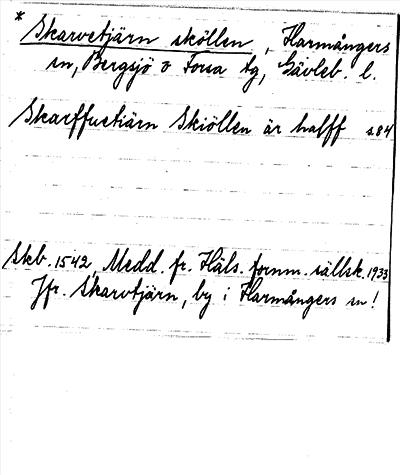 * Skarvetjärn sköllen, Harmångers
sn, Bergsjö o Forsa tg, Gävleb. l.
Skarffuetiärn Skiöllen är halff s84
Skb. 1542, Medd. fr. Häls. fornm. sällsk. 1933
Jfr. Skarvtjärn, by i Harmångers sn!